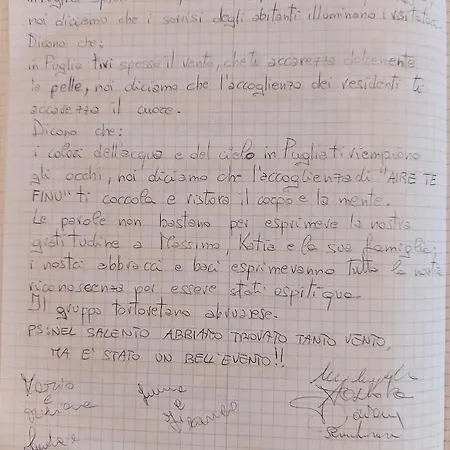 noi diciamo che i sorrisi degli abitanti illuminano i visitatori.
Dicono che:
in Puglia tivi spesso il vento, che ti accarezza dolcemente
la pelle, noi diciamo che l'accoglienza dei residenti ti
accarezza il cuore.
Dicono che:
i colori dell'acqua e del cielo in Puglia ti riempiono
gli occhi, noi diciamo che l'accoglienza di "AIRE TE
FINU" ti coccola e ristora il corpo e la mente.
Le parole non bastano per esprimere la nostra
gratitudine a Massimo, Katia e la sua famiglia;
i nostri abbracci e baci esprimeranno tutta la nostra
riconoscenza per essere stati ospiti qua.
Il gruppo tortoretano abruzzese.
PS: NEL SALENTO ABBIAMO TROVATO TANTO VENTO,
MA E' STATO UN BELL'EVENTO!!
e
e